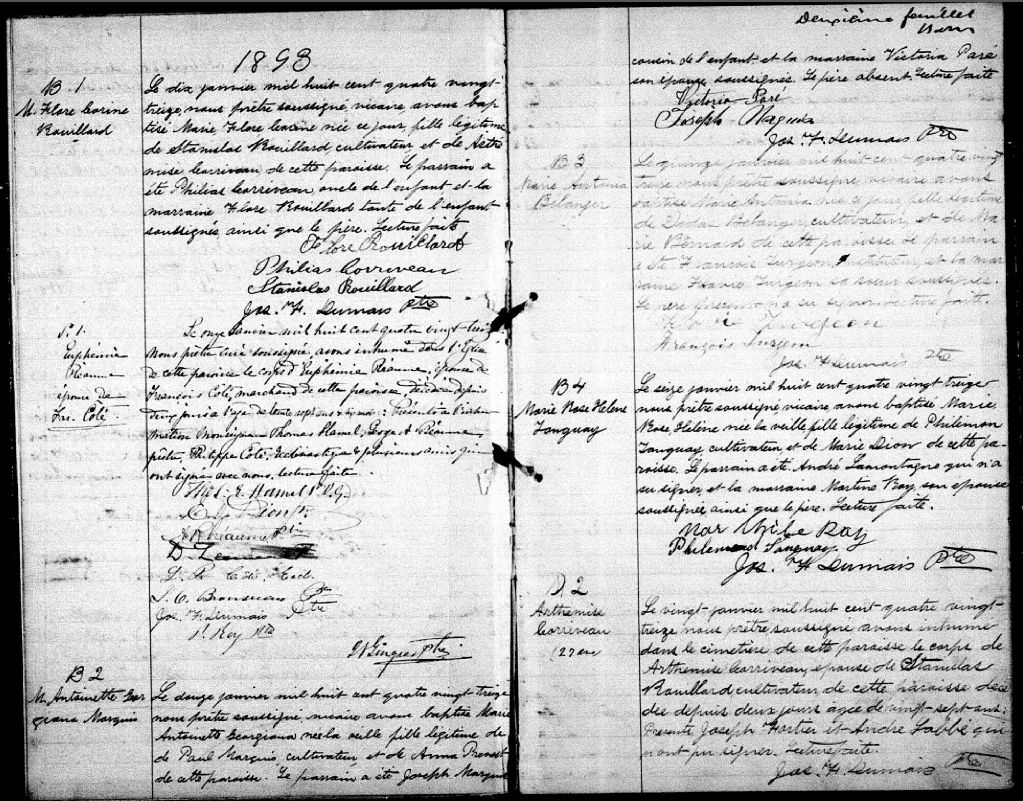 1893
B 1
M. Flore Corine
Rouillard
Le dix janvier mil huit cent quatre vingt-
treize, nous prêtre soussigné, vicaire avons bap
tisé Marie Flore Corine née ce jour, fille légitime
de Stanislas Rouillard cultivateur et de Arthé
mise Corriveau, de cette paroisse. Le parrain a
été Philias Corriveau, oncle de l'enfant et la
marraine Flore Rouillard tante de l'enfant
soussignés ainsi que le père. Lecture faite
Flore Rouillard
Philias Corriveau
Stanislas Rouillard
Jos. H. Dumais Ptre
S. 1.
Euphémie
Réaume
épouse de
Frs. Coté.
Le onze Janvier mil huit cent quatre vingt treize
Nous prêtre curé soussigné, avons inhumé dans l'Eglise
de cette paroisse le corps d'Euphémie Réaume, épouse de
François Coté, marchand de cette paroisse, décédée depuis
l'age de trente sept ans : Présents à l'inhu
mation Monseigneur Thomas Hamel, George A Réaume,
prêtre, Philippe Coté, Ecclésiastique & plusieurs amis qui
ont signé avec nous. lecture faite.
Thos. E. Hamel P.A.
A Réaume Ptre
D.
Coté, Eccl.
Brousseau Ptre
Jos. H. Dumais Ptre
Roy Ptre
Gingras ptre.
B 2
M. Antoinette Geor
giana Marquis
Le douze janvier mil huit cent quatre vingt treize
nous prêtre soussigné, vicaire avons baptisé Marie
Antoinette Georgiana née la veille fille légitime de
de Paul Marquis, cultivateur, et de Anna Prevost
de cette paroisse. Le parrain a été Joseph Marquis
Deuxième feuillet
cousin de l'enfant et la marraine Victoria Paré
son épouse soussignés. Le père absent. Lecture faite
Victoria Paré
Joseph Marquis
Jos. H. Dumais Ptre
B 3
Marie Antonia
Bélanger
Le quinze janvier mil huit cent quatre vingt
treize nous prêtre soussigné vicaire avons
baptisé Marie Antonia née ce jour fille légitime
de Bélanger, cultivateur, et de Ma
rie de cette paroisse. Le parrain
a été François Turgeon, instituteur, et la mar
raine Flavie Turgeon sa soeur soussignés.
Le père présent n'a su signer. Lecture faite.
Turgeon
François Turgeon
Jos. H. Dumais Ptre
B 4
Marie Rose Helene
Tanguay
Le seize janvier mil huit cent quatre vingt treize
nous prêtre soussigné, vicaire avons baptisé Marie
Rose Hélène née la veille fille légitime de Philemon
Tanguay cultivateur et de Marie Dion de cette pa-
roisse. Le parrain a été André Lamontagne qui n'a
su signer, et la marraine Martine Roy, son epouse
soussignée, ainsi que le père. Lecture faite.
Roy
Philemon Tanguay
Jos. H Dumais Ptre
S. 2
Arthémise
Corriveau
(27 ans
Le vingt janvier mil huit cent quatre vingt-
treize nous prêtre soussigné avons inhumé
dans le cimetière de cette paroisse le corps de
Arthémise Corriveau, epouse de Stanislas
Rouillard cultivateur, de cette paroisse décé
dée depuis deux jours agée de vingt-sept ans.
Présents Joseph Fortier et André Labbé qui
n'ont pu signer. Lecture faite.
Jos. H. Dumais Ptre